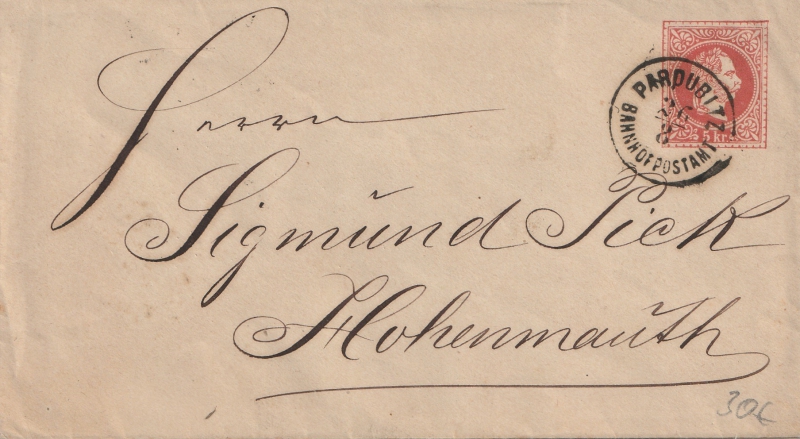 PARDUBITZ
BAHNHOFPOSTAMT
5 kr.
Herrn
Sigmund Pick
Hohenmauth
30€